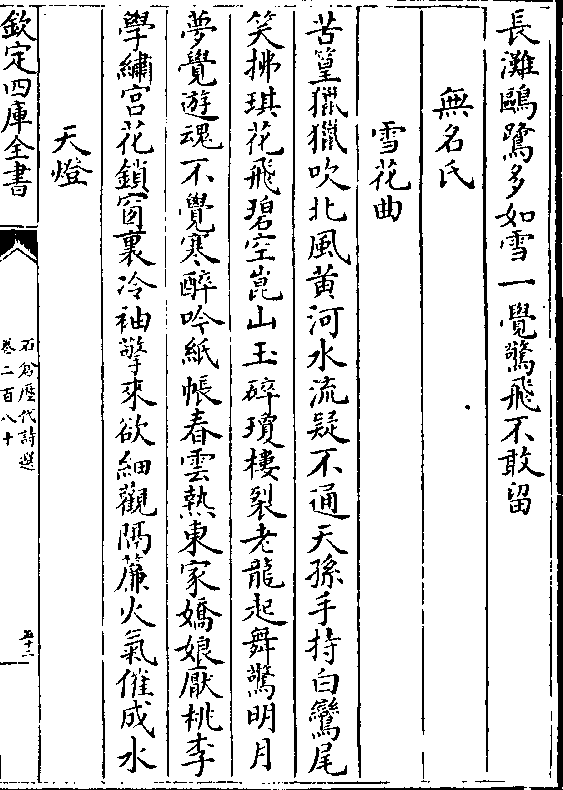 長灘鷗鷺多如雪一覺驚飛不敢留
無名氏
雪花曲
苦篁獵獵吹北風黄河水流疑不通天孫手持白鸞尾
笑拂琪花飛碧空崑山玉碎瓊樓裂老龍起舞驚明月
夢覺遊魂不覺寒醉吟紙帳春雲熱東家嬌娘厭桃李
學繡宫花鎖窗裏冷袖擎來欲細觀隔簾火氣催成水
天燈
欽定四庫全書
石倉歴代詩選
卷二百八十
五十二